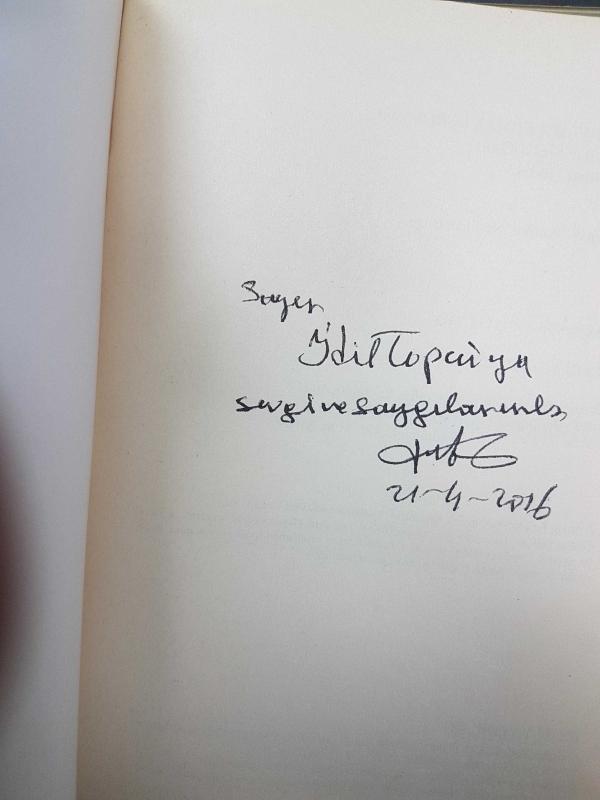 Sayın
İdil Topcu'ya
sevgi ve saygılarımla,
21-4-2016